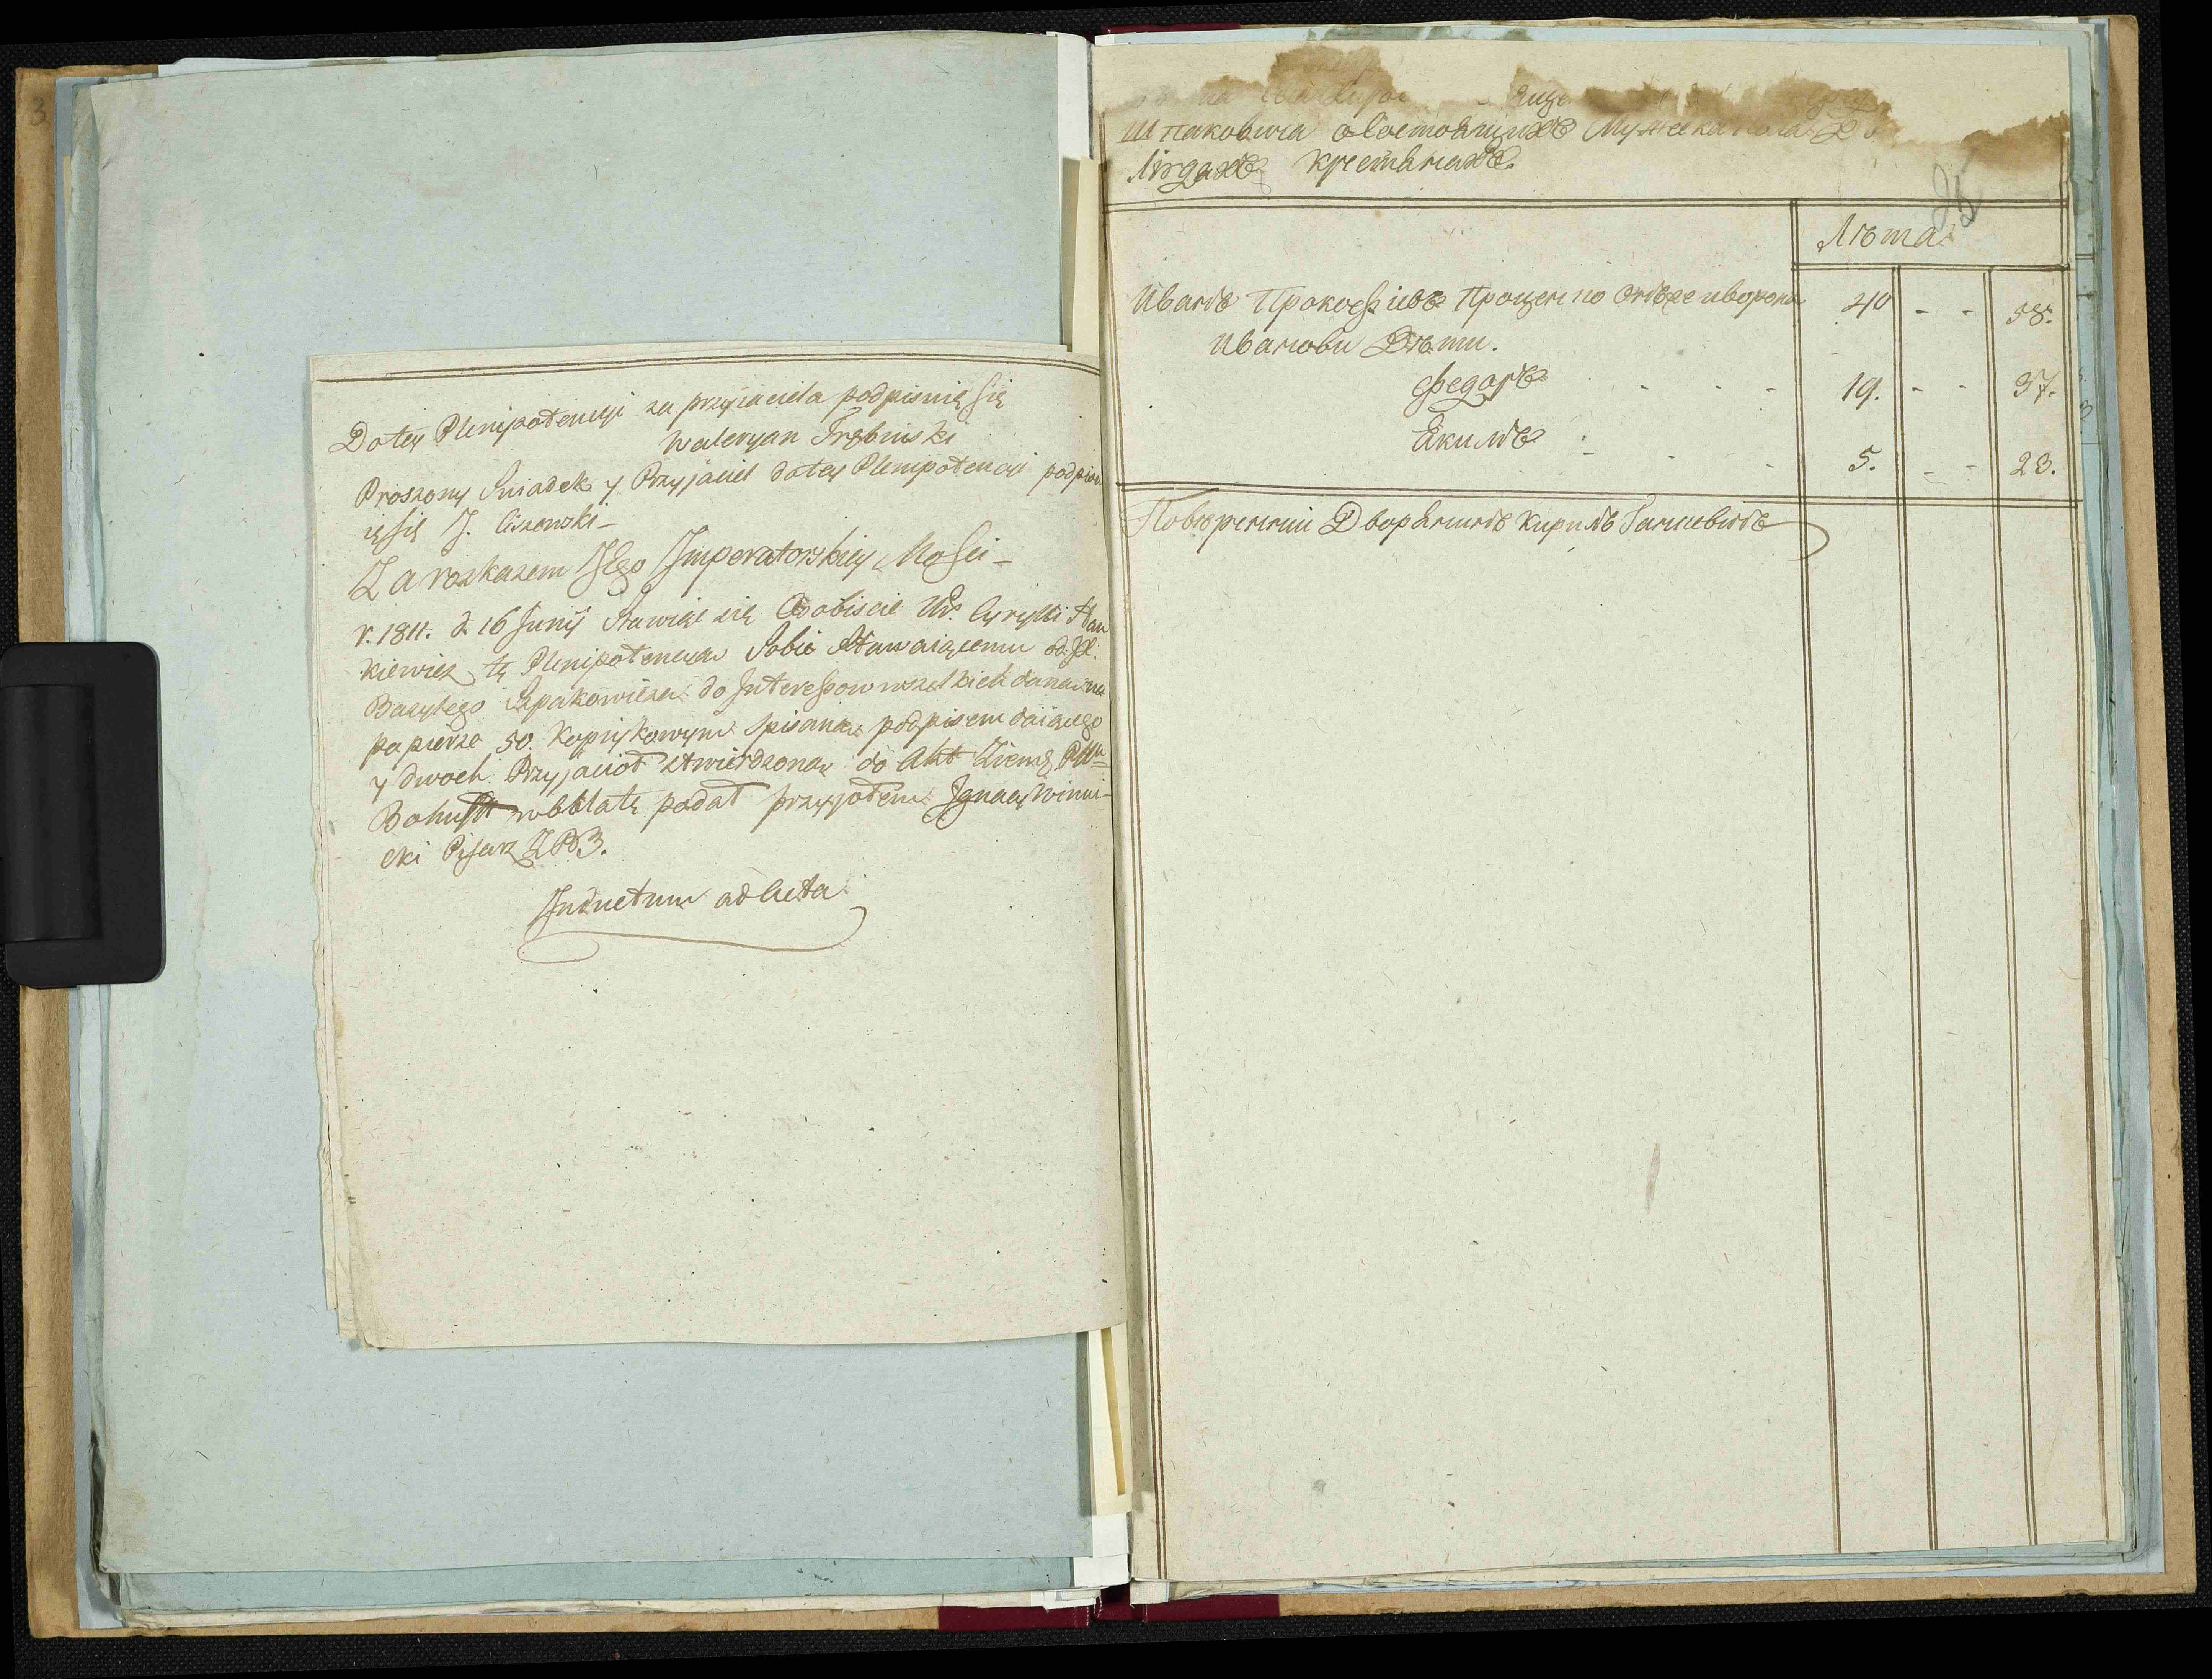 3
Do tey Plenipotencyi za przyjaciela podpisuię się
Waleryan Trębinski
Proszony Swiadek y Przyjaciel do tey Plenipotencyi podpisu
ię się J. Ciszewski –
Za rozkazem JEgo Imperatorskiey Mosci –
r. 1811. d. 16 Junij Stawiąc się Osobiscie Ur. Cyrylli Han
kiewicz tę Plenipotencyą Sobie Stawaiącemu od JP.
Bazylego Szpakowicza do Interessow wszelkich daną na
papierze 50. Kopiykowym spisaną podpisem daiącego
y dwoch Przyjacioł stwierdzoną do Akt Ziems. Pttu
Bohust w oblatę podał przyjołem Ignacy Winni-
cki Pisarz Z P B.
Inductum ad Acta
Шпаковича о состоящихъ Мужеска пола
Людахъ крестьянахъ.
Лѣта
Иванъ Прокофіевъ Проценко
40 - - 58.
Ивановы Дѣти.
Федоръ - - - 19. - - 37.
Якимъ - - - 5. - - 23.
Повѣренный Дворянинъ Кирилъ Ганкевичъ